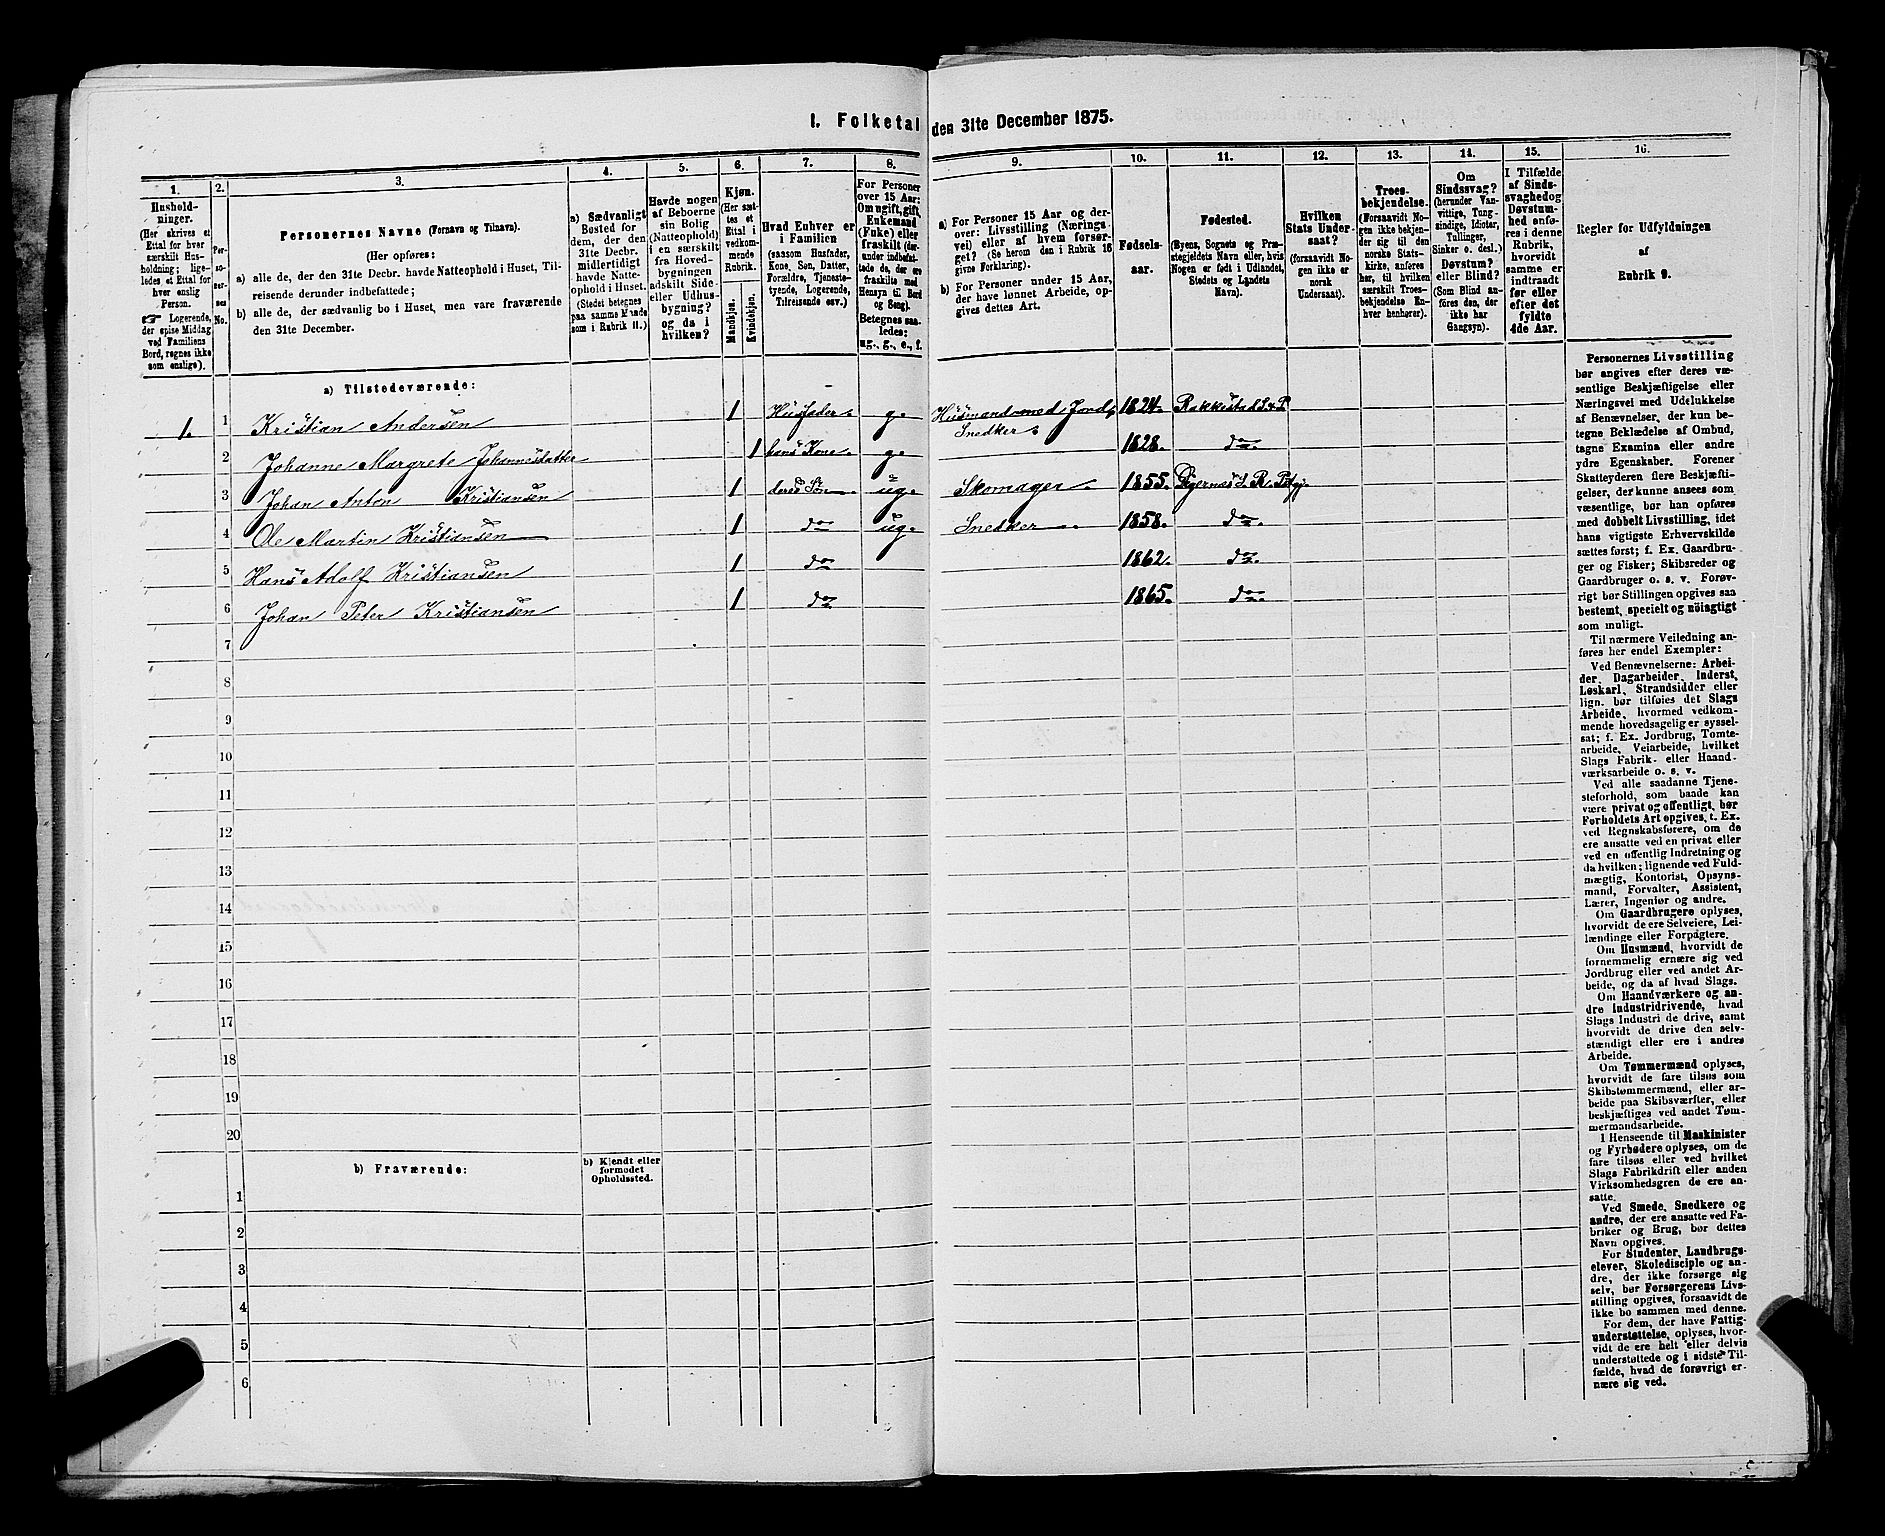 I. Folketal den 31te December 1875.
1. 2. 3. 4. 5. 6. 7. 8. 9. 10. 11. 12. 13. 14. 15. 16.
Hushold-
ninger.
(Her skrives et
Ettal for hver
særskilt Hus-
holdning; lige-
ledes et Ettal for
hver enslig
Person.
☞ Logerende,
der spise Middag
ved Familiens
Bord, regnes ikke
som enslige).
Per-
so-
ner-
nes
No.
Personernes Navne (Fornavn og Tilnavn).
(Her opføres:
a) alle de, der den 31te Decbr. havde Natteophold i Huset, Til-
reisende derunder indbefattede;
b) alle de, der sædvanlig bo i Huset, men vare fraværende
den 31te December.
a) Sædvanligt
Bosted for
dem, der den
31te Decbr.
midlertidigt
havde Natte-
ophold i Huset.
(Stedet betegnes
paa samme Maade
som i Rubrik II.)
Havde nogen
af Beboerne
sin Bolig
(Natteophold)
i en særskilt
fra Hoved-
bygningen
adskilt Side-
eller Udhus-
bygning?
og da i
hvilken?
Kjøn.
(Her sæt-
tes et
Ettal i
vedkom-
mende
Rubrik.
Mandkjøn.
Kvindekjøn.
Hvad Enhver er
i Familien
(saasom Husfader,
Kone, Søn, Datter,
Forældre, Tjeneste-
tyende, Logerende,
Tilreisende osv.)
For Personer
over 15 Aar:
Om ugift, gift,
Enkemand
(Enke) eller
fraskilt (der-
under indbefat-
tede de, der ere
fraskilte med
Hensyn til Bord
og Seng).
Betegnes saa-
ledes:
ug., g., e., f.
a) For Personer 15 Aar og der-
over: Livsstilling (Nærings-
vei) eller af hvem forsør-
get? (Se herom den i Rubrik 16
givne Forklaring).
b) For Personer under 15 Aar,
der have lønnet Arbeide, op-
gives dettes Art.
Fødsels-
aar.
Fødested.
(Byens, Sognets og Præ-
stegjeldets Navn eller, hvis
Nogen er født i Udlandet,
Stedets og Landets
Navn).
Hvilken
Stats Under-
saat?
(forsaavidt No-
gen ikke er
norsk
Undersaat).
Troes-
bekjendelse.
(Forsaavidt No-
gen ikke bekjen-
der sig til den
norske Stats-
kirke, anføres
her, til hvilken
særskilt Troes-
bekjendelse En-
hver henhører).
Om
Sindssvag?
(herunder Van-
vittige, Tung-
sindige, Idioter,
Tullinger,
Sinker o. desl.)
Døvstum?
eller Blind?
(Som Blind an-
føres den, der
ikke har
Gangsyn).
I Tilfælde
af Sinds-
svaghed og
Døvstum-
hed anfø-
res i denne
Rubrik,
hvorvidt
samme er
indtraadt
før eller
efter det
fyldte
4de Aar.
Regler for Udfyldningen
af
Rubrik 9.
a) Tilstedeværende:
1. 1 Kristian Andersen 1 Husfader g. Husmand med Jord, Snedker 1824. Rakkestad S. & P.
2 Johanne Margrete Johannesdatter 1 hans Kone g. 1828. do
3 Johan Anton Kristiansen 1 deres Søn ug. Skomager 1855.
4 Ole Martin Kristiansen 1 do ug. Snedker 1858. do
5 Hans Adolf Kristiansen 1 do 1862. do
6 Johan Peter Kristiansen 1 do 1865. do
7
8
9
10
11
12
13
14
15
16
17
18
19
20
b) Fraværende:
b) Kjendt eller
formodet
Opholdssted.
1
2
3
4
5
6
Personernes Livsstilling
bør angives efter deres væ-
sentlige Beskjæftigelse eller
Næringsvei med Udelukkelse
af Benævnelser, der kun be-
tegne Beklædelse af Ombud,
tagne Examina eller andre
ydre Egenskaber. Forener
Skatteyderen flere Beskjæfti-
gelser, der kunne ansees som
væsentlige, bør han opføres
med dobbelt Livsstilling, idet
hans vigtigste Erhvervskilde
sættes først; f. Ex. Gaardbru-
ger og Fisker; Skibsreder og
Gaardbruger o. s. v. Forøv-
rigt bør Stillingen opgives saa
bestemt, specielt og nöiagtigt
som muligt.
Til nærmere Veiledning an-
føres her endel Exempler:
Ved Benævnelserne: Arbei-
der, Dagarbeider, Inderst,
Løskarl, Strandsidder eller
lign. bør tilføies det Slags
Arbeide, hvormed vedkom-
mende hovedsagelig er syssel-
sat; f. Ex. Jordbrug, Tomte-
arbeide, Veiarbeide, hvilket
Slags Fabrik- eller Haand-
værksarbeide o. s. v.
Ved alle saadanne Tjene-
steforhold, som baade kan
være privat og offentligt, bør
Forholdets Art opgives, t. Ex.
ved Regnskabsførere, om de
ere ansatte ved en privat eller
ved en offentlig Indretning og
da hvilken; lignende ved Fuld-
mægtig, Kontorist, Opsyns-
mand, Forvalter, Assistent,
Lærer, Ingeniør og andre.
Om Gaardbrugere oplyses,
hvorvidt de ere Selveiere, Lei-
lændinge eller Forpagtere.
Om Husmænd, hvorvidt de
fornemmelig ernære sig ved
Jordbrug eller ved andet Ar-
beide, og da af hvad Slags.
Om Haandværkere og an-
dre Industridrivende, hvad
Slags Industri de drive, samt
hvorvidt de drive den selv-
stændigt eller ere i andres
Arbeide.
Om Tømmermænd oplyses,
hvorvidt de fare tilsøs som
Skibstømmermænd, eller ar-
beide paa Skibsværfter, eller
beskjæftiges ved andet Tøm-
mermandsarbeide.
I Henseende til Maskinister
og Fyrbødere oplyses, om de
fare tilsøs eller ved hvilket
Slags Fabrikdrift eller anden
Virksomhedsgren de ere an-
satte.
Ved Smede, Snedkere og
andre, der ere ansatte ved Fa-
briker og Brug, bør dettes
Navn opgives.
For Studenter, Landbrugs-
elever, Skoledisciple og an-
dre, der ikke forsørge sig
selv, bør Forsørgerens Livs-
stilling opgives, forsaavidt de
ikke bo sammen med denne.
For dem, der have Fattig-
understøttelse, oplyses, hvor-
vidt de ere helt eller delvis
understøttede og i sidste Til-
fælde, hvad de forøvrigt er-
nære sig ved.